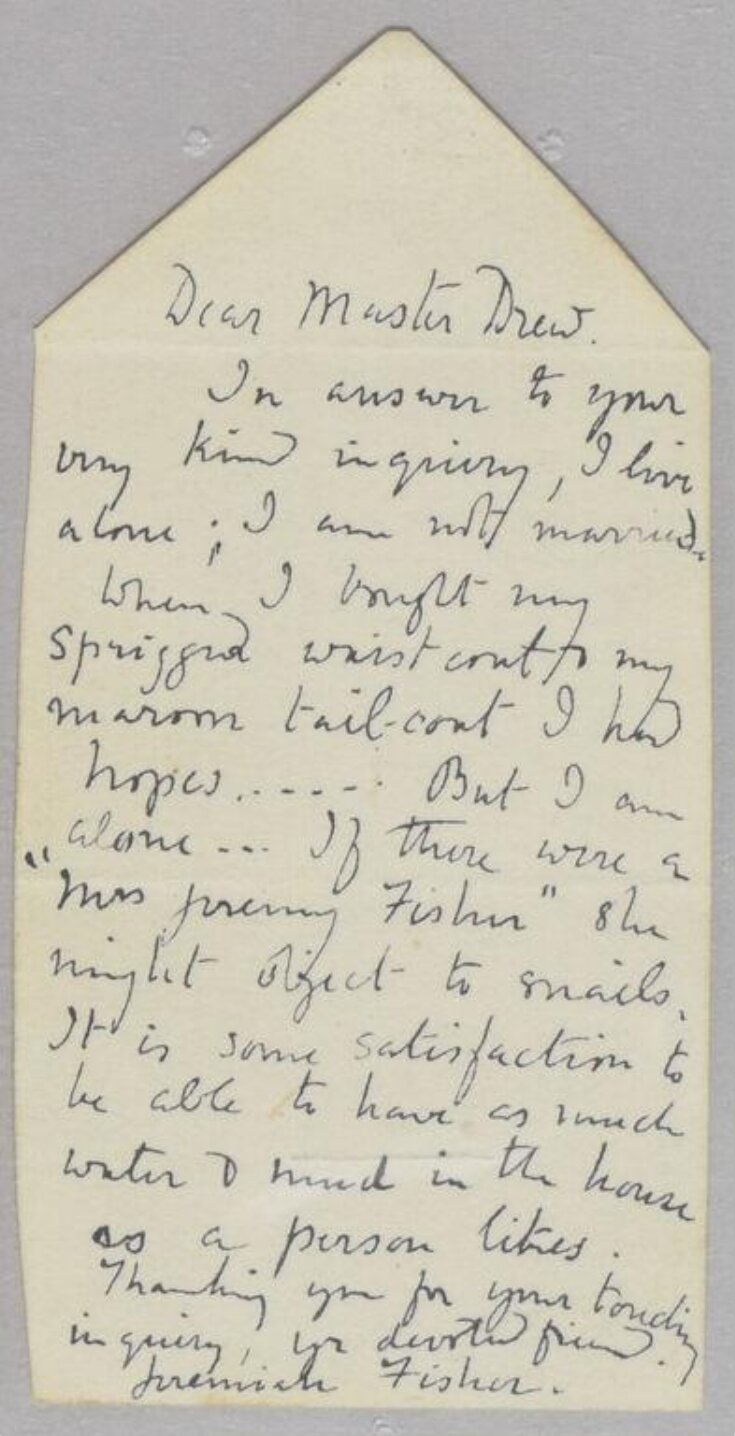 Dear Master Drew.
In answer to your
very kind inquiery, I live
alone; I am not married.
When I bought my
sprigged waistcoat & my
maroon tail-coat I had
hopes..... But I am
alone... If there were a
"Mrs Jeremy Fisher" she
might object to snails.
It is some satisfaction to
be able to have as much
water & mud in the house
as a person likes.
Thanking you for your touching
inquiery, yr devoted friend.
Jeremiah Fisher.